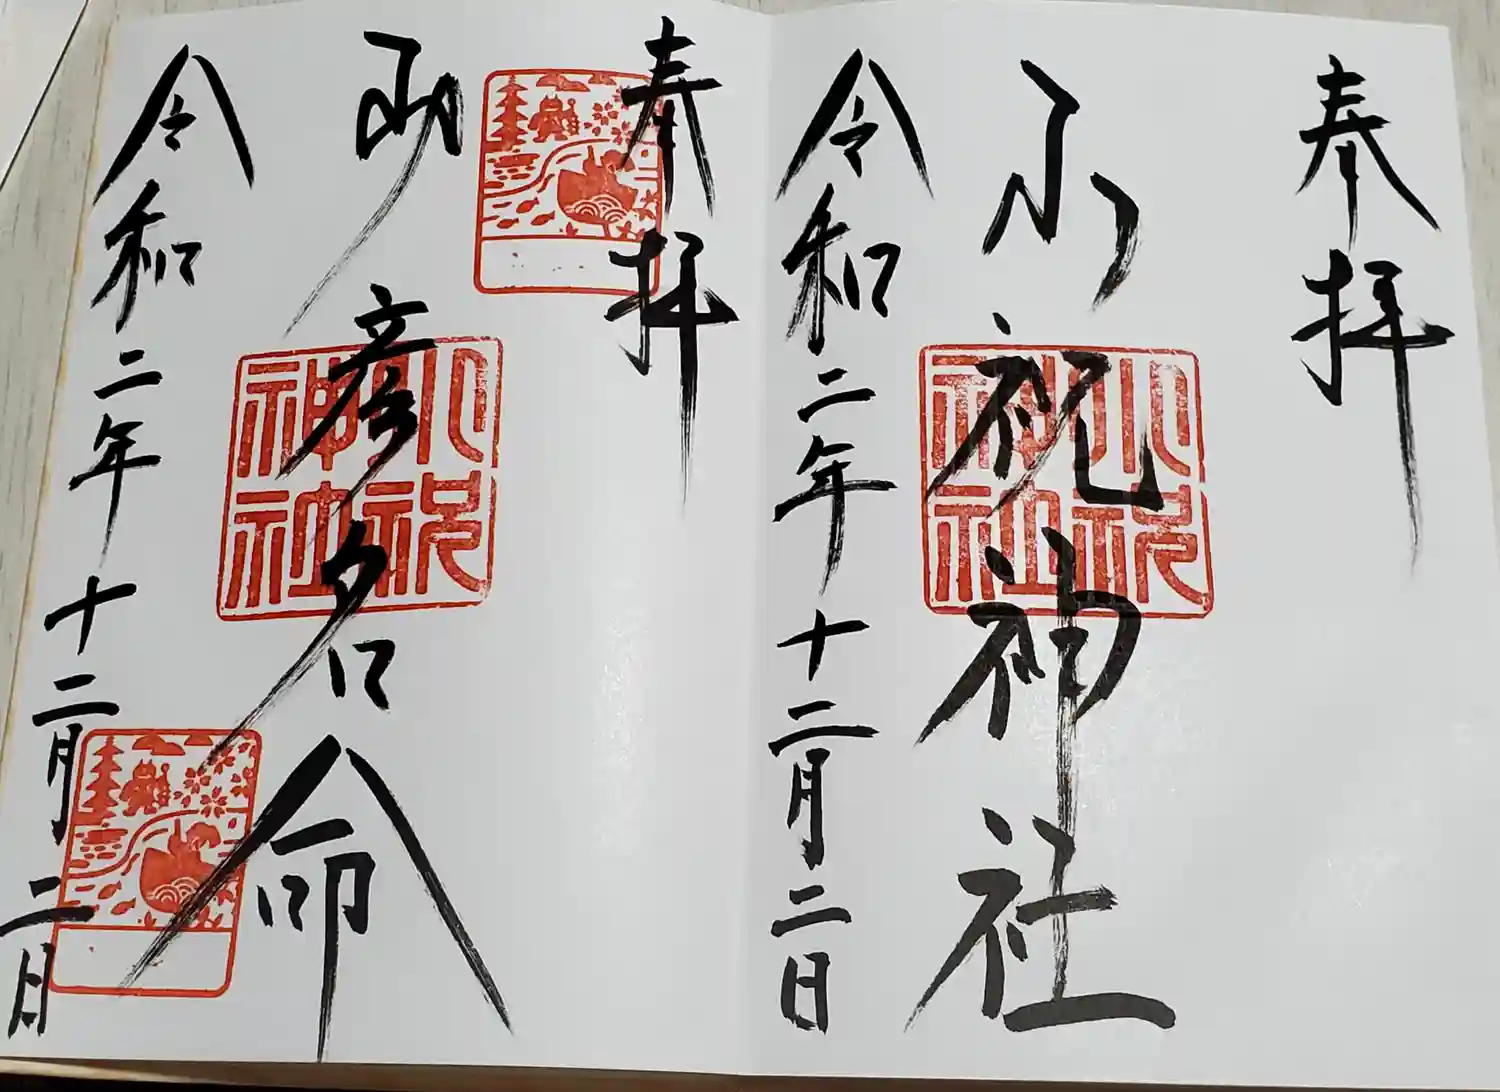 奉拝
小祝神社
小祝
神社
令和二年十二月二日
奉拝
少彦名命
小祝
神社
令和二年十二月二日